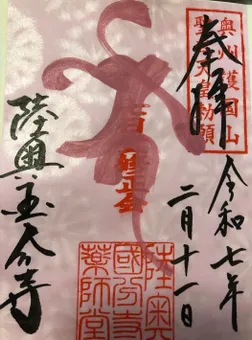 奥州護国山
聖武天皇勅願
奉拝
令和七年
二月十一日
陸奥
國分寺
薬師堂
陸奥国分寺